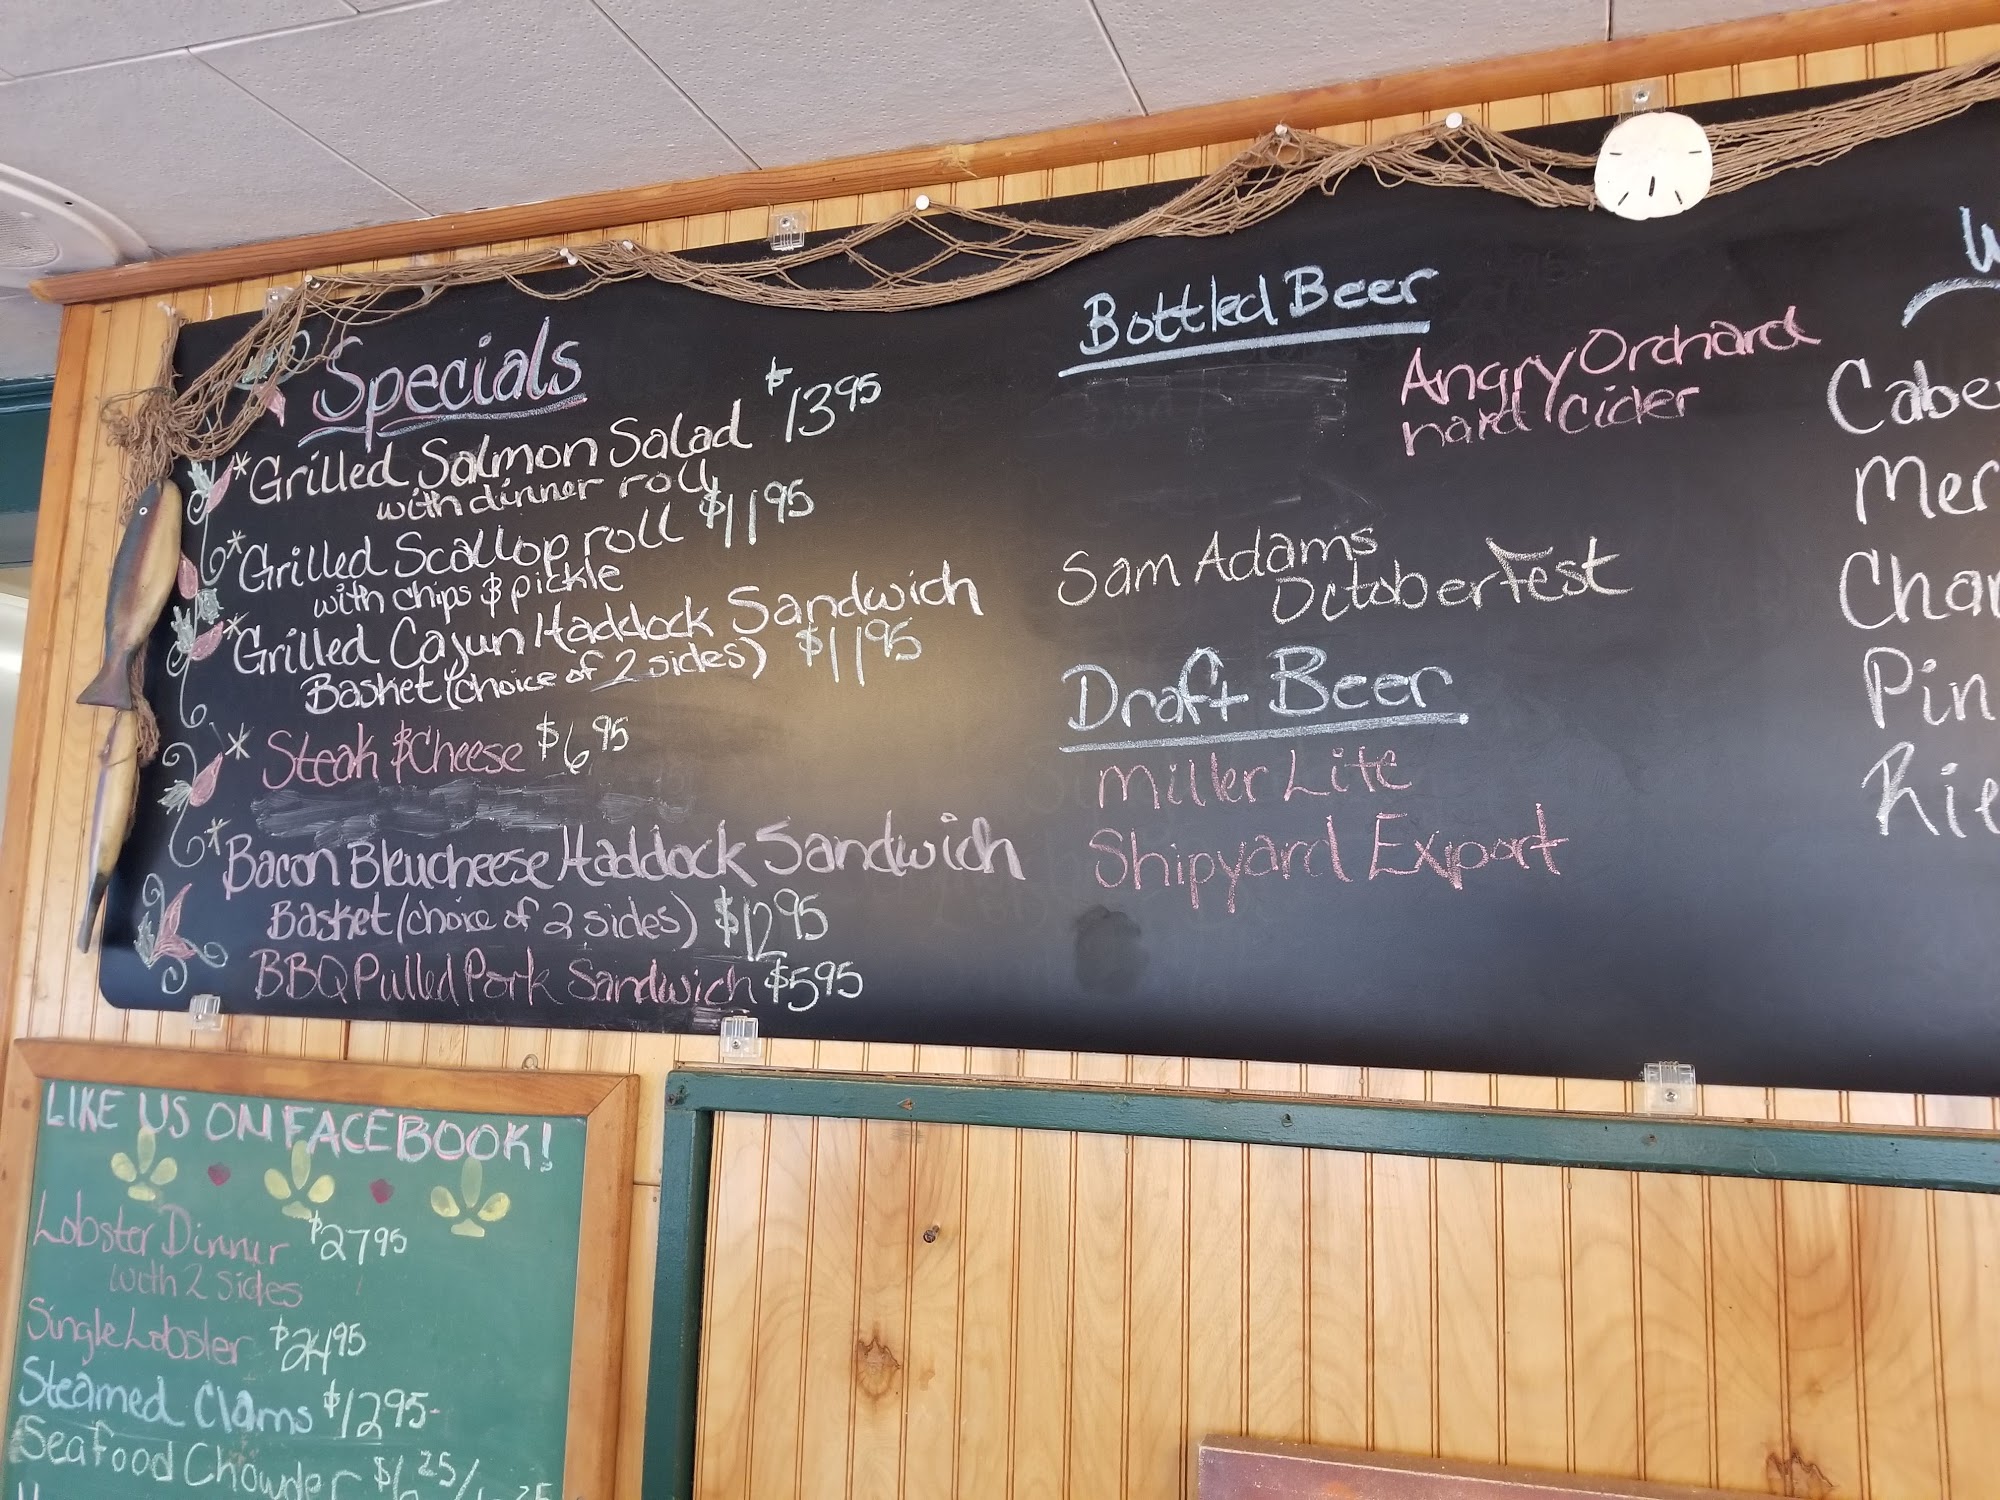 Specials
*Grilled Salmon Salad $13.95
with dinner roll
*Grilled Scallop roll $11.95
with chips & pickle
*Grilled Cajun Haddock Sandwich
Basket (choice of 2 sides) $11.95
* Steak & Cheese $6.95
*Bacon Bleucheese Haddock Sandwich
Basket (choice of 2 sides) $12.95
BBQ Pulled Pork Sandwich $5.95
Bottled Beer
Angry Orchard
hard Cider
Sam Adams
Octoberfest
Draft Beer
Miller Lite
Shipyard Export
LIKE US ON FACEBOOK!
Lobster Dinner $27.95
with 2 sides
Single Lobster $24.95
Steamed Clams $12.95
Seafood Chowder $6.25/